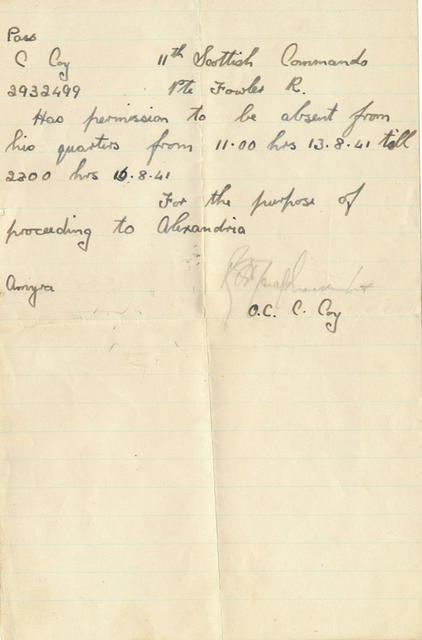 Pass
C Coy 11th Scottish Commando
2932499 Pte Fowler R.
Has permission to be absent from
his quarters from 11.00 hrs 13.8.41 till
2200 hrs 16.8.41
For the purpose of
proceeding to Alexandria
Amyra
O.C. C. Coy